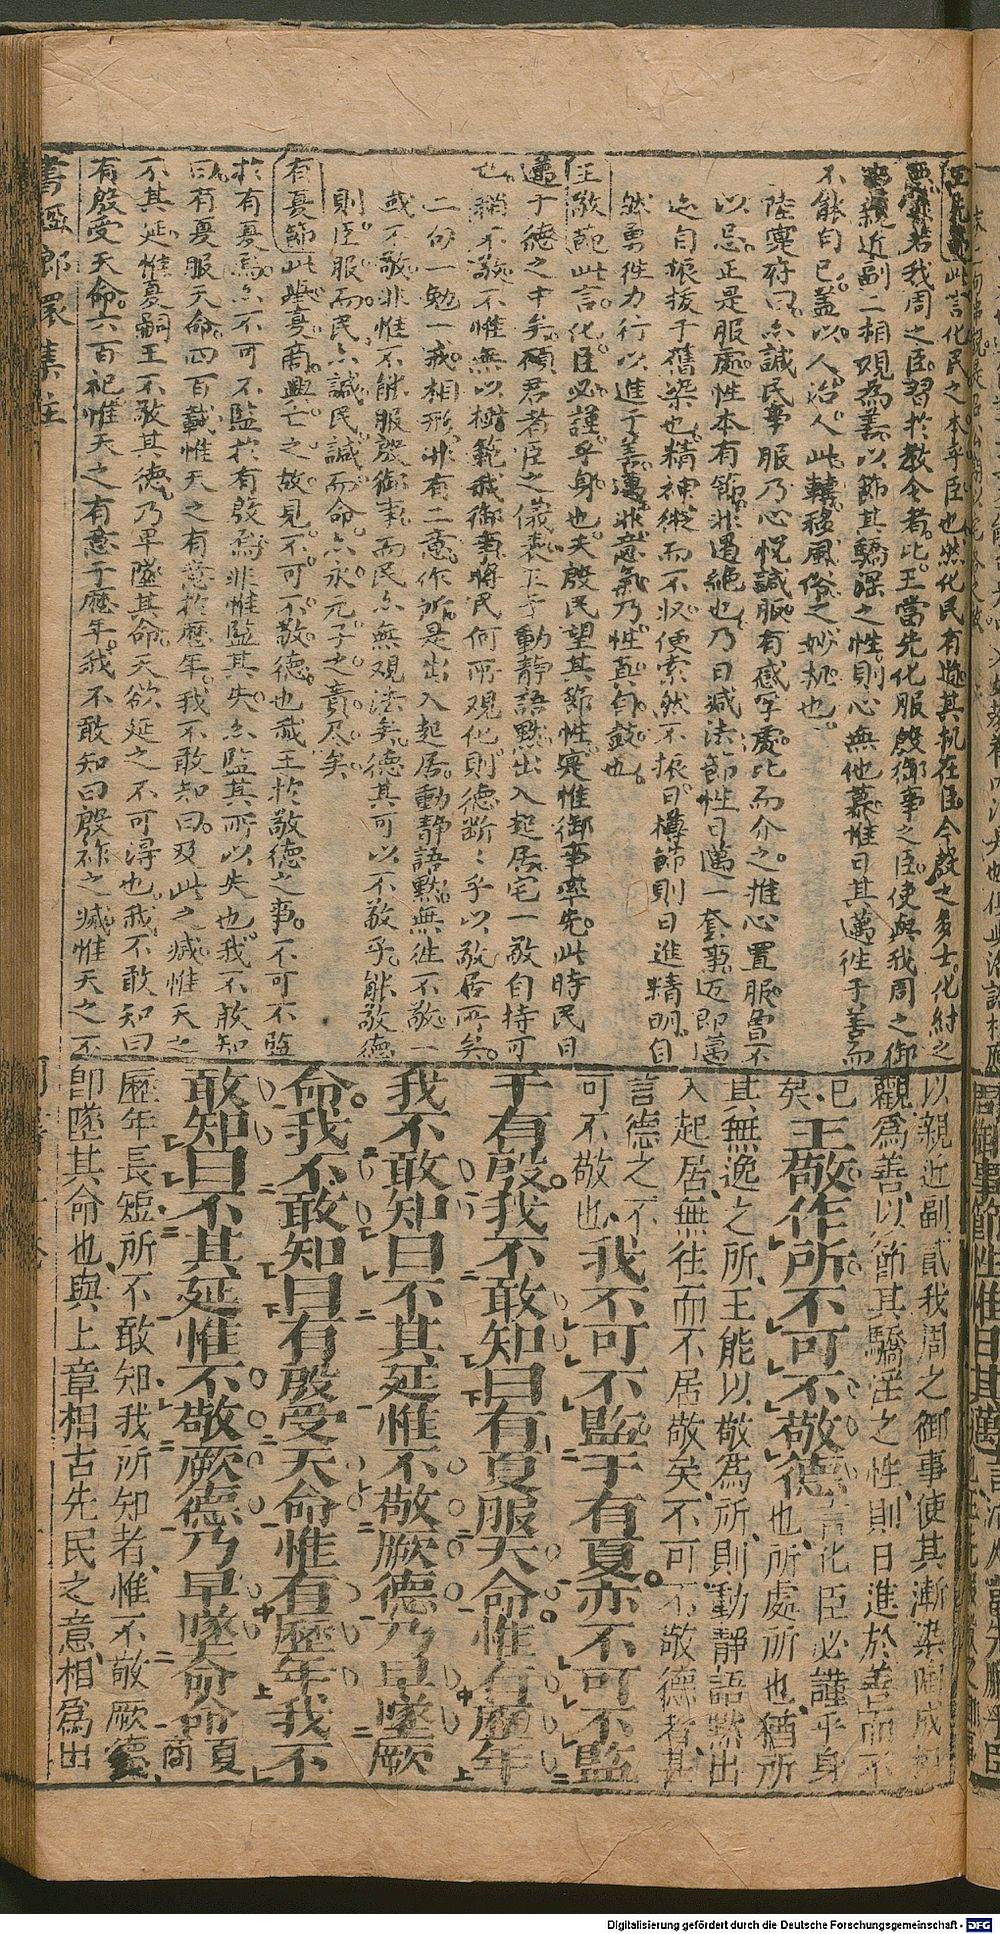 此言化民之本乎臣也然化民有道其机在臣今殷之多士化紂之
若我周之臣習於教令者比王當先化服殷御事之臣使與我周之御
親近副二相覌為善以節其驕淫之性則心無他慕惟日其邁徃于善而
不能自已蓋以人治人此轉移風俗之妙机也
陸實府曰誠民事服乃心恱誠服有感孚處比而介之推心置服畧不
以忌正是服處性本有節非遏絶也乃曰减法節性日邁一套事迈即邁
迄自振拔于舊染也精神縱而不収便索然不振曰樽節則日進精明自
然勇徃力行以進于善邁非意氣乃性真自鼓也
王敬節此言化臣必謹乎身也夫殷民望其節性寔惟御事率先此時民日
邁于徳之中矣顧君者臣之儀表王于動靜語默出入起居宅一敬自持可
也稍不敬不惟無以楷範我御事将民何所覌化則徳断断乎以敬居所矣
二句一勉一戒相形非有二意作所是出入起居動靜語默無徃不敬一
或不敬非惟不能服殷御事而民亦無覌法矣徳其可以不敬乎能敬徳
則臣服而民亦諴民諴而命亦永元子之責尽矣
有夏節此舉夏商興亡之故見不可不敬徳也哉王於敬徳之事不可不監
於有夏焉亦不可不監於有殷焉非惟監其失亦監其所以失也我不敢知
曰有夏服天命四百載惟天之有意於歷年我不敢知曰及此之㓕惟天之
不其延惟夏嗣王不敬其徳乃早墜其命天欲延之不可得也我不敢知曰
有殷受天命六百祀惟天之有意于歷年我不敢知曰殷祚之㓕惟天之不
書經郎環集註
以親近副貳我周之御事使其漸染陶成相
觀為善以節其驕淫之性則日進於善而不
已
矣王敬作所不可不敬德言化臣必謹乎身也所處所也猶所
其無逸之所王能以敬為所則動靜語默出
入起居無往而不居敬矣不可不敬德者甚
言德之不
可不敬也我不可不監于有夏亦不可不監
于有殷我不敢知曰有夏服天命惟有歷年
我不敢知曰不其延惟不敬厥德乃早墜厥
命我不敢知曰有殷受天命惟有歷年我不
敢知曰不其延惟不敬厥德乃早墜厥命夏商
歷年長短所不敢知我所知者惟不敬厥德
卽墜其命也與上章相古先民之意相為出
Digitalisierung gefördert durch die Deutsche Forschungsgemeinschaft - DFG